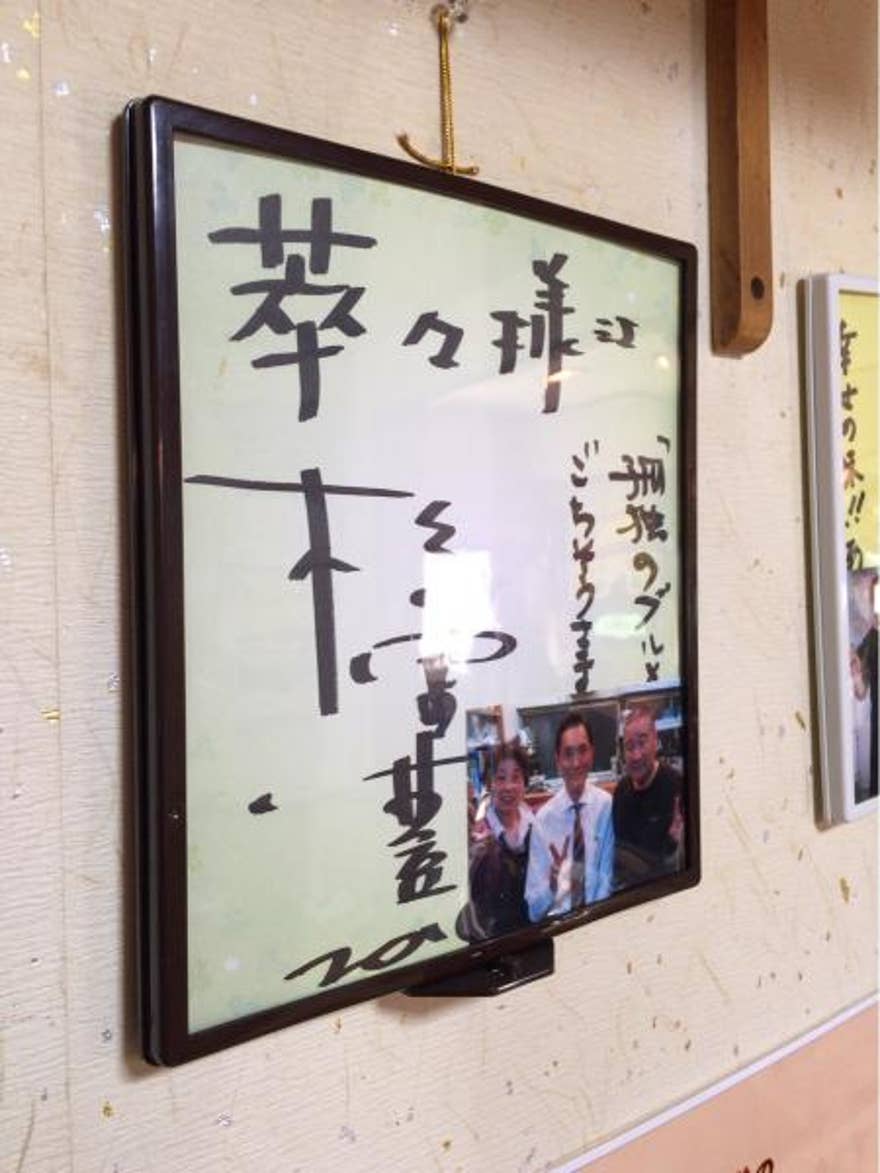 萃々様江
「孤独のグルメ
ごちそうさま
松重豊
幸せの味!!